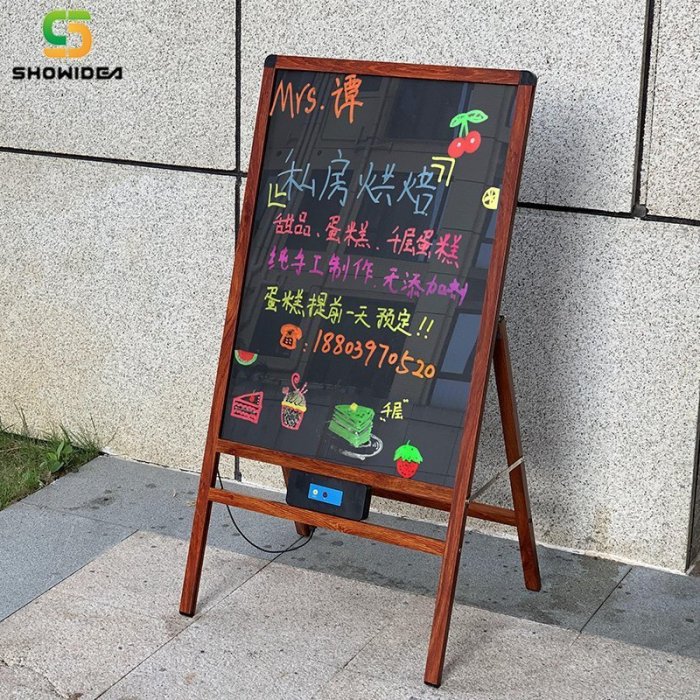 SHOWIDEA
Mrs.谭
私房烘焙
甜品、蛋糕、千层蛋糕
纯手工制作,无添加剂
蛋糕提前一天预定!!
:18803970520
千层